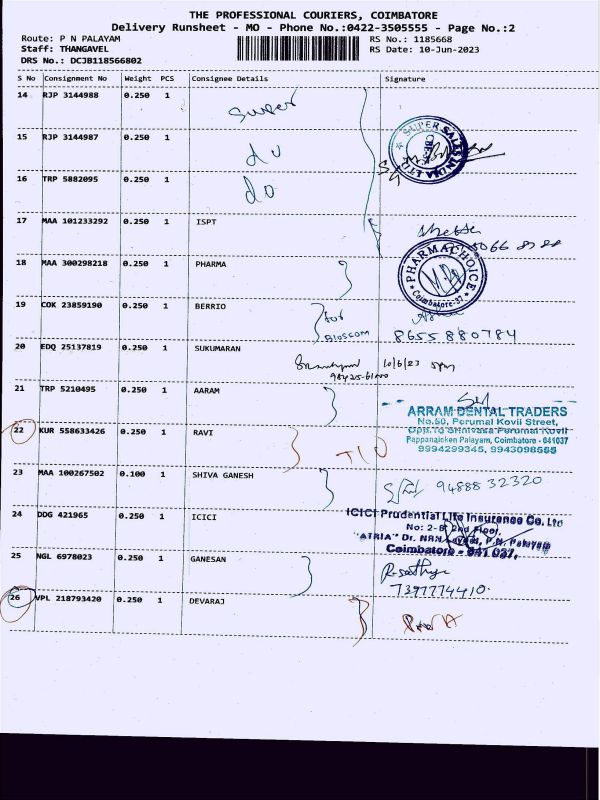 THE PROFESSIONAL COURIERS, COIMBATORE
Delivery Runsheet - MO - Phone No.:0422-3505555 - Page No.:2
Route: P N PALAYAM RS No.: 1185668
Staff: THANGAVEL RS Date: 10-Jun-2023
DRS No.: DCJB118566802
S No Consignment No Weight PCS Consignee Details Signature
14 RJP 3144988 0.250 1 Super
15 RJP 3144987 0.250 1 do
SUPER SALES INDIA LTD
CBE
16 TRP 5882095 0.250 1 do
17 MAA 101233292 0.250 1 ISPT
18 MAA 300298218 0.250 1 PHARMA
PHARMA CHOICE
Coimbatore-37
19 COK 23859190 0.250 1 BERRIO for
BLOSCOM 8655880784
20 EDQ 25137819 0.250 1 SUKUMARAN
10/6/23 5pm
21 TRP 5210495 0.250 1 AARAM
ARRAM DENTAL TRADERS
No.50, Perumal Kovil Street,
Opp.To Srinivasa Perumal Kovil
Pappanaicken Palayam, Coimbatore - 641037
9994299345, 9943098555
22 KUR 558633426 0.250 1 RAVI
23 MAA 100267502 0.100 1 SHIVA GANESH 94888 32320
24 DDG 421965 0.250 1 ICICI
ICICI Prudential Life Insurance Co. Ltd
No: 2-B, 2nd Floor,
"ATRIA" Dr. NRN Layout, P.N. Palayam
Coimbatore - 641 037.
25 NGL 6978023 0.250 1 GANESAN
R. Sathya
7397774410.
26 VPL 218793420 0.250 1 DEVARAJ